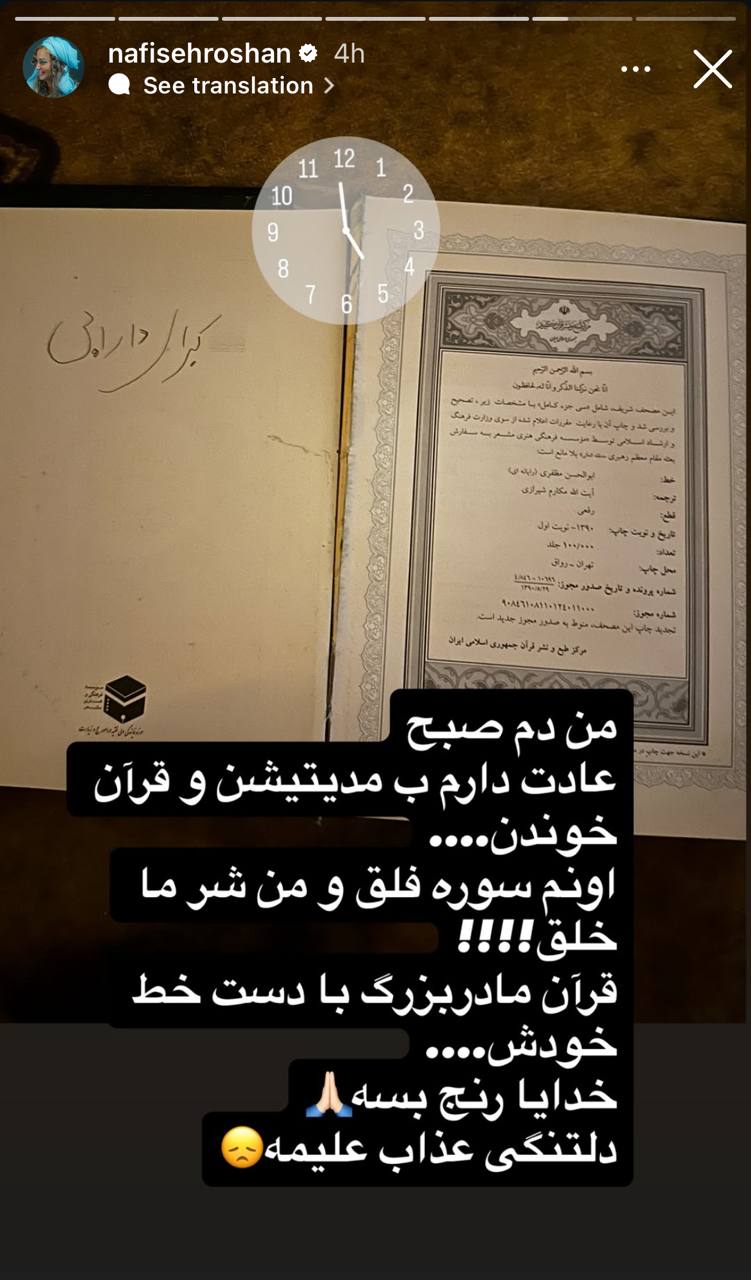 nafisehroshan 4h
See translation
12
11 1
10 2
9 3
8 4
7 5
6
کبرای دارابی
بسم الله الرحمن الرحیم
انا نحن نزلنا الذکر و انا له لحافظون
این مصحف شریف، شامل «سی جزء کامل» با مشخصات زیر، تصحیح
و بررسی شد و چاپ آن با رعایت مقررات اعلام شده از سوی وزارت فرهنگ
و ارشاد اسلامی توسط «مؤسسه فرهنگی هنری مشعر» به سفارش
بعثه مقام معظم رهبری بلا مانع است:
خط: ابوالحسن مظفری (رایانه ای)
ترجمه: آیت الله مکارم شیرازی
قطع: رقعی
تاریخ و نوبت چاپ: ۱۳۹۰- نوبت اول
تعداد: ۱۰۰/۰۰۰ جلد
محل چاپ: تهران - رواق
شماره پرونده و تاریخ صدور مجوز:
شماره مجوز: ۹۰۸۴۶۱۰۸۱۱۰۱۲۴۰۱۱۰۰۰
تجدید چاپ این مصحف، منوط به صدور مجوز جدید است.
مرکز طبع و نشر قرآن جمهوری اسلامی ایران
* این نسخه جهت چاپ در
موسسه
فرهنگی و
هنری
مشعر
من دم صبح
عادت دارم ب مدیتیشن و قرآن
خوندن....
اونم سوره فلق و من شر ما
خلق!!!!
قرآن مادربزرگ با دست خط
خودش....
خدایا رنج بسه🙏🏻
دلتنگی عذاب علیمه😞